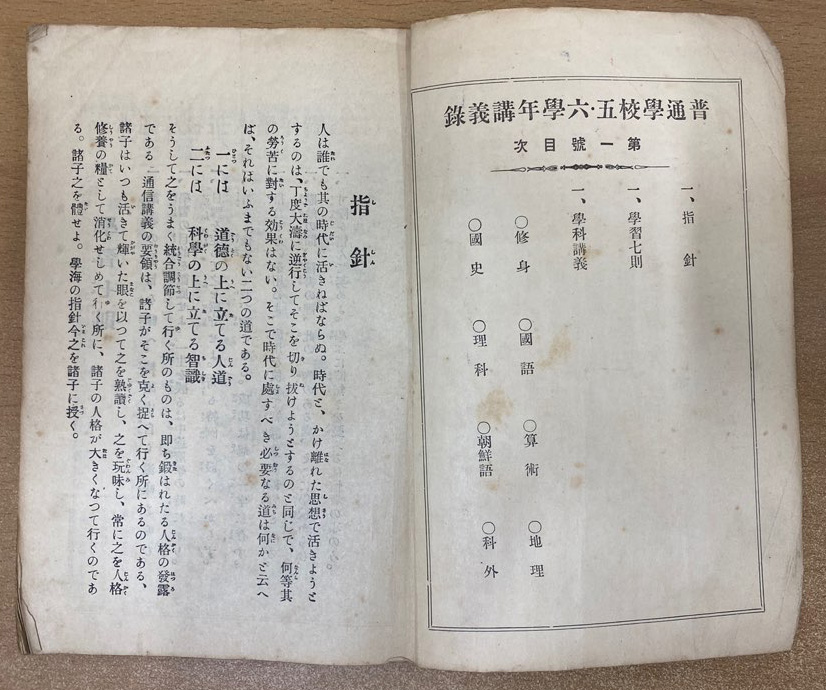 普通學校五・六學年講義錄
第一號目次
一、指針
一、學習七則
一、學科講義
〇修身 〇國語 〇算術 〇地理
〇國史 〇理科 〇朝鮮語 〇科外
指針
人は誰でも其の時代に活きねばならぬ。時代と、かけ離れた思想で活きようと
するのは、丁度大濤に逆行してそこを切り抜けようとするのと同じで、何等其
の勞苦に對する効果はない。そこで時代に處すべき必要なる道は何かと云へ
ば、それはいふまでもない二つの道である。
一には 道德の上に立てる人道
二には 科學の上に立てる智識
そうして之をうまく統合調節して行く所のものは、即ち鍛はれたる人格の發露
である 通信講義の要領は、諸子がそこを克く捉へて行く所にあるのである、
諸子はいつも活きて輝いた眼を以つて之を熟讀し、之を玩味し、常に之を人格
修養の糧として消化せしめて行く所に、諸子の人格が大きくなつて行くのであ
る。諸子之を體せよ。學海の指針今之を諸子に授く。